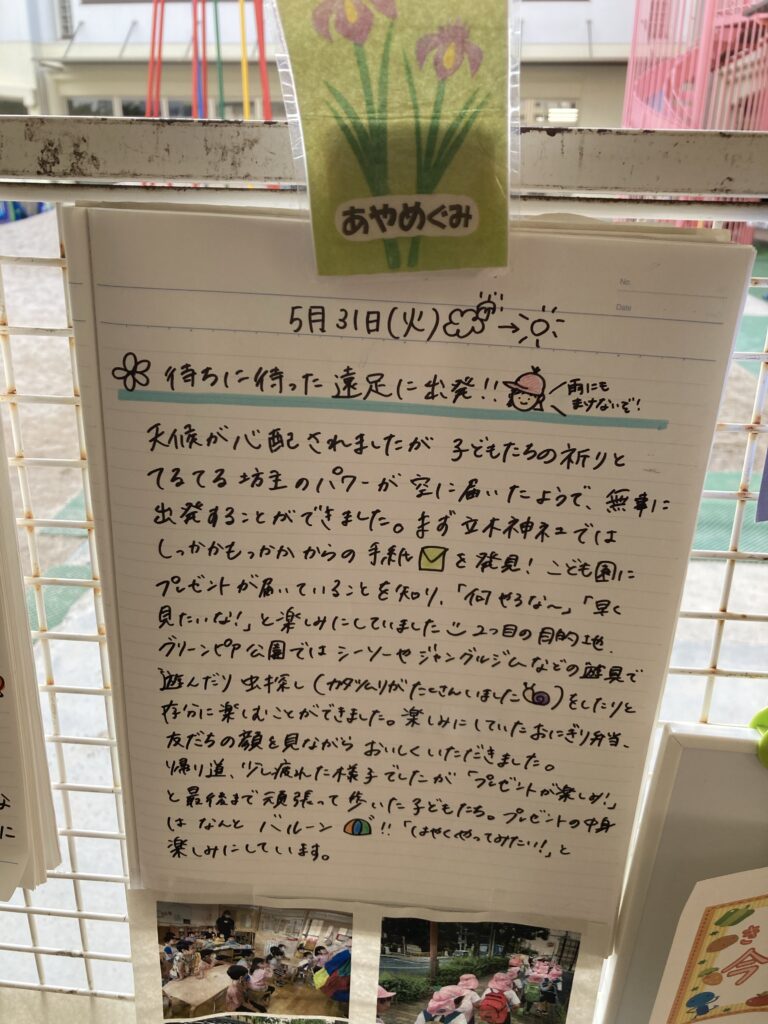 あやめぐみ
No.
Date
5月31日(火)
待ちに待った遠足に出発!!
雨にも
まけないぞ!
天候が心配されましたが 子どもたちの祈りと
てるてる坊主のパワーが 空に届いたようで、無事に
出発することができました。まず立木神社では
しっかかもっかか からの 手紙 を発見! こども園に
プレゼントが届いていることを知り、「何やろな〜」「早く
見たいな!」と楽しみにしていました 2つ目の目的地、
グリーンピア公園では シーソーや ジャングルジムなどの遊具で
遊んだり 虫探し (カタツムリがたくさんいました )をしたりと
存分に楽しむことができました。楽しみにしていたおにぎり弁当、
友だちの顔を見ながら おいしくいただきました。
帰り道、少し疲れた様子でしたが「プレゼントが楽しみ!」
と最後まで頑張って歩いた子どもたち。プレゼントの中身
は なんと バルーン !!「はやくやってみたい!」と
楽しみにしています。
な
に
き
今